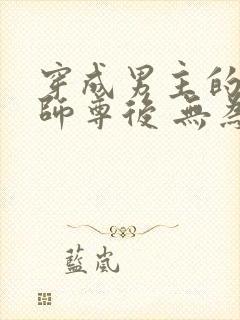 穿成男主的
師尊後 無
藍岚